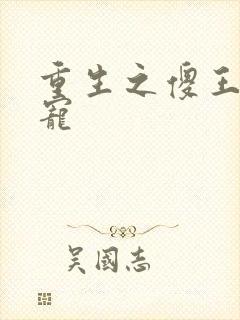 重生之傻王
寵
吴國志